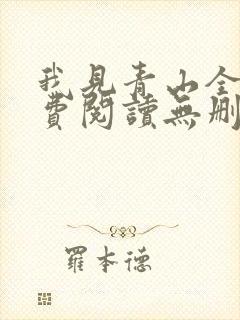 我見青山全
費閱讀無刪
羅本德